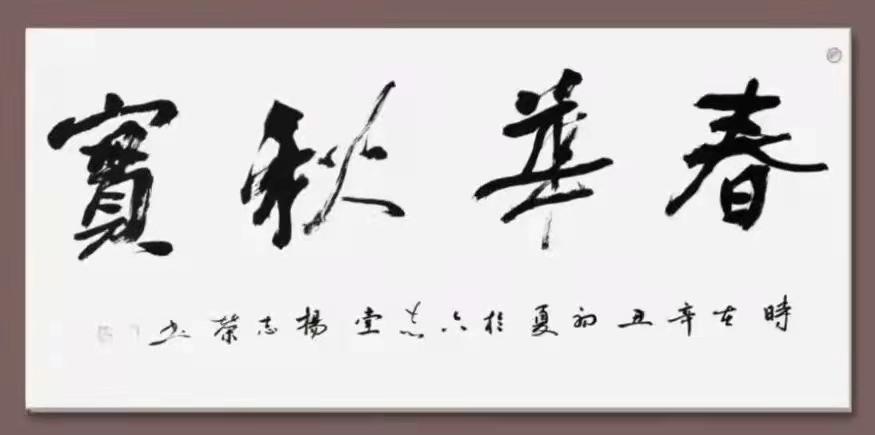 春華秋實
時在辛丑初夏於六志堂楊志榮书